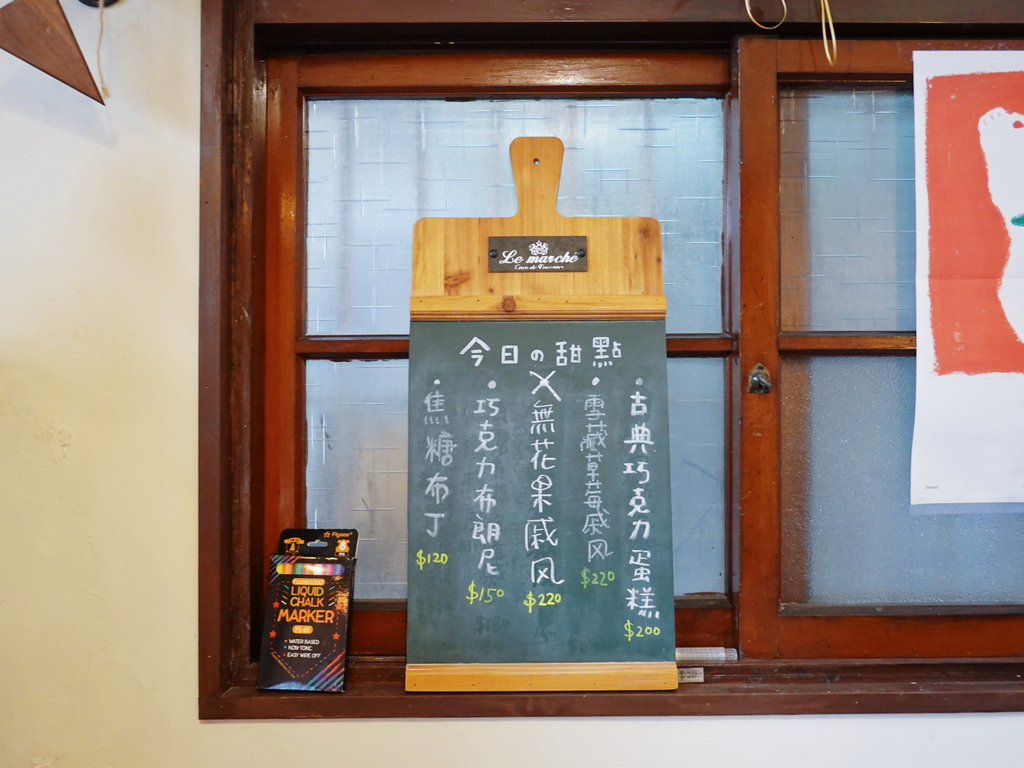 Le marché
今日の甜點
·古典巧克力蛋糕
$200
·雪藏草莓戚风
$220
X無花果戚风
$220
·巧克力布朗尼
$150
·焦糖布丁
$120
Flysea
8
LIQUID
CHALK
MARKER
WATER BASED
NON-TOXIC
EASY WIPE OFF
$20